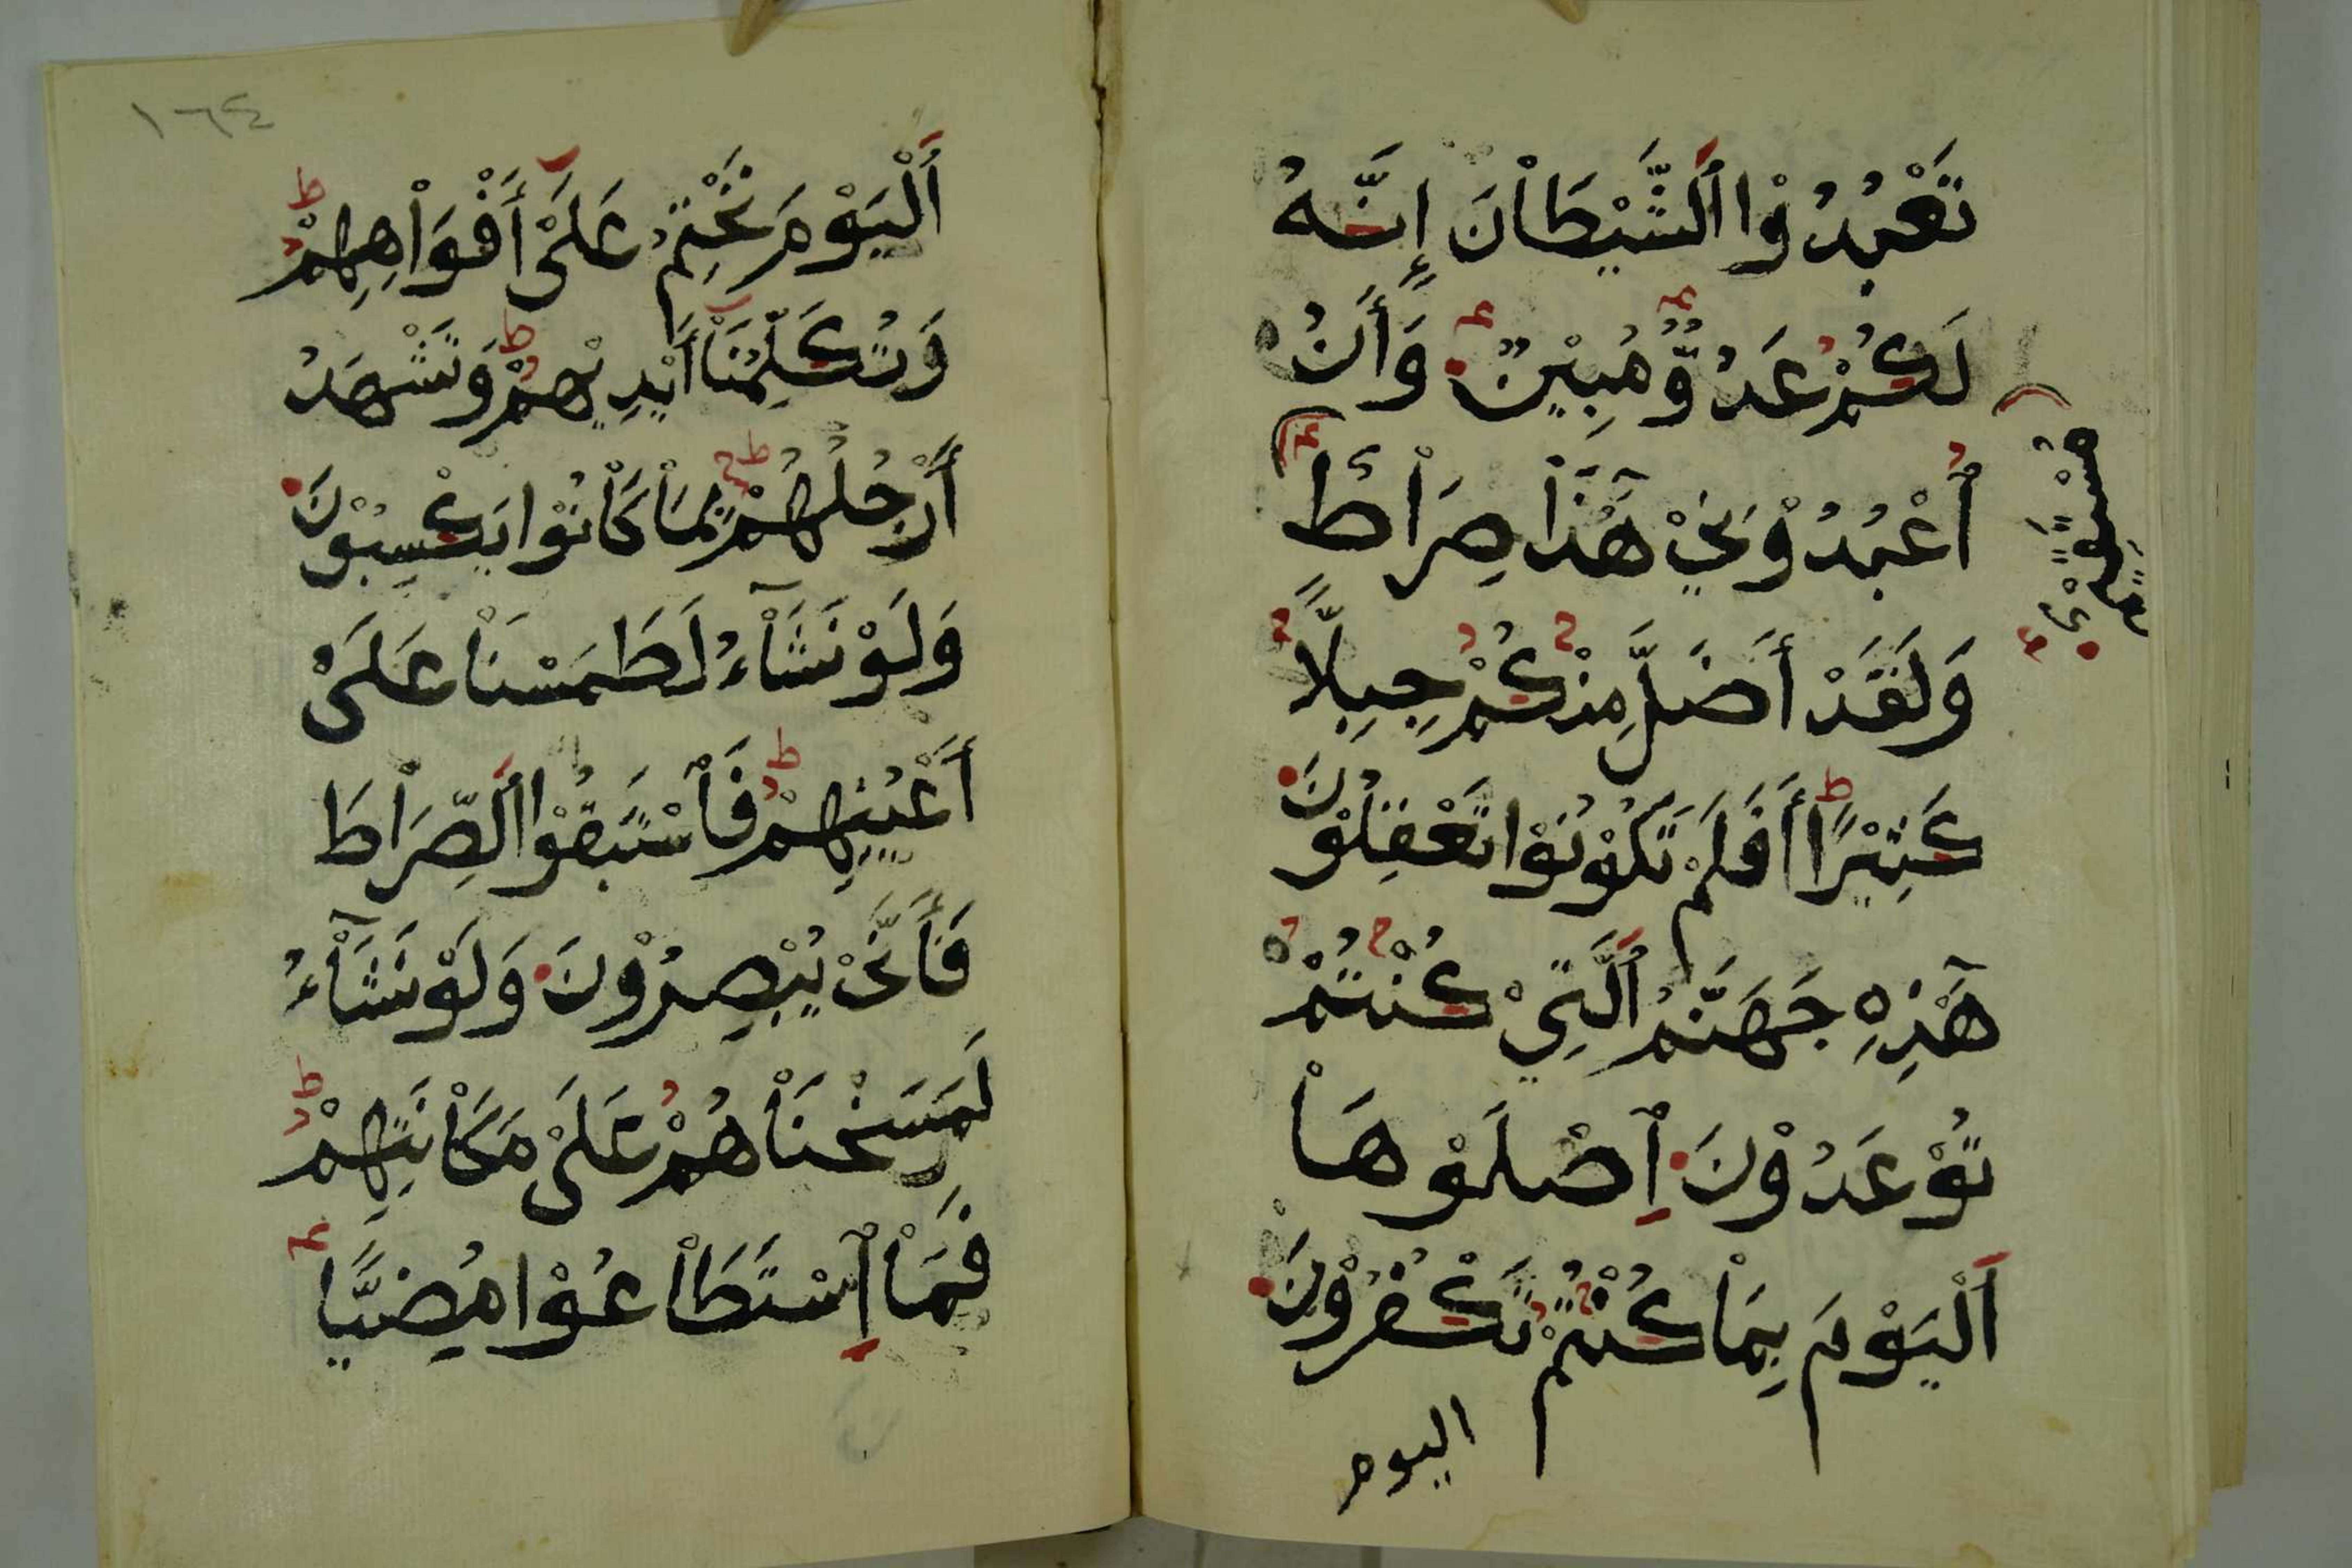 تَعْبُدُوْا الشَّيْطَاْنَ إِنَّهُ
لَكُمْ عَدُوٌّ مُبِيْنٌ وَأَنُ
اُعْبُدُوْنِيْ هٰذَاْ صِرَاْطٌ
مُسْتَقِيْمٌ
وَلَقَدْ أَضَلَّ مِنْكُمْ جِبِلًّا
كَثِيْرًا أَفَلَمْ تَكُوْنُوْا تَعْقِلُوْنَ
هٰذِهِ جَهَنَّمُ الَّتِيْ كُنْتُمْ
تُوْعَدُوْنَ اِصْلَوْهَاْ
اَلْيَوْمَ بِمَاْ كُنْتُمْ تَكْفُرُوْنَ
اليوم
١٦٤
أَلْيَوْمَ نَخْتِمُ عَلَىْ أَفْوَاْهِهِمْ
وَتُكَلِّمُنَاْ أَيْدِيْهِمْ وَتَشْهَدُ
أَرْجُلُهُمْ بِمَاْ كَاْنُوْا يَكْسِبُوْنَ
وَلَوْ نَشَآْءُ لَطَمَسْنَاْ عَلَىْ
أَعْيُنِهِمْ فَاْسْتَبَقُوْا الصِّرَاْطَ
فَأَنَّىْ يُبْصِرُوْنَ وَلَوْ نَشَآْءُ
لَمَسَخْنَاْهُمْ عَلَىْ مَكَاْنَتِهِمْ
فَمَاْ اِسْتَطَاْعُوْا مُضِيًّا